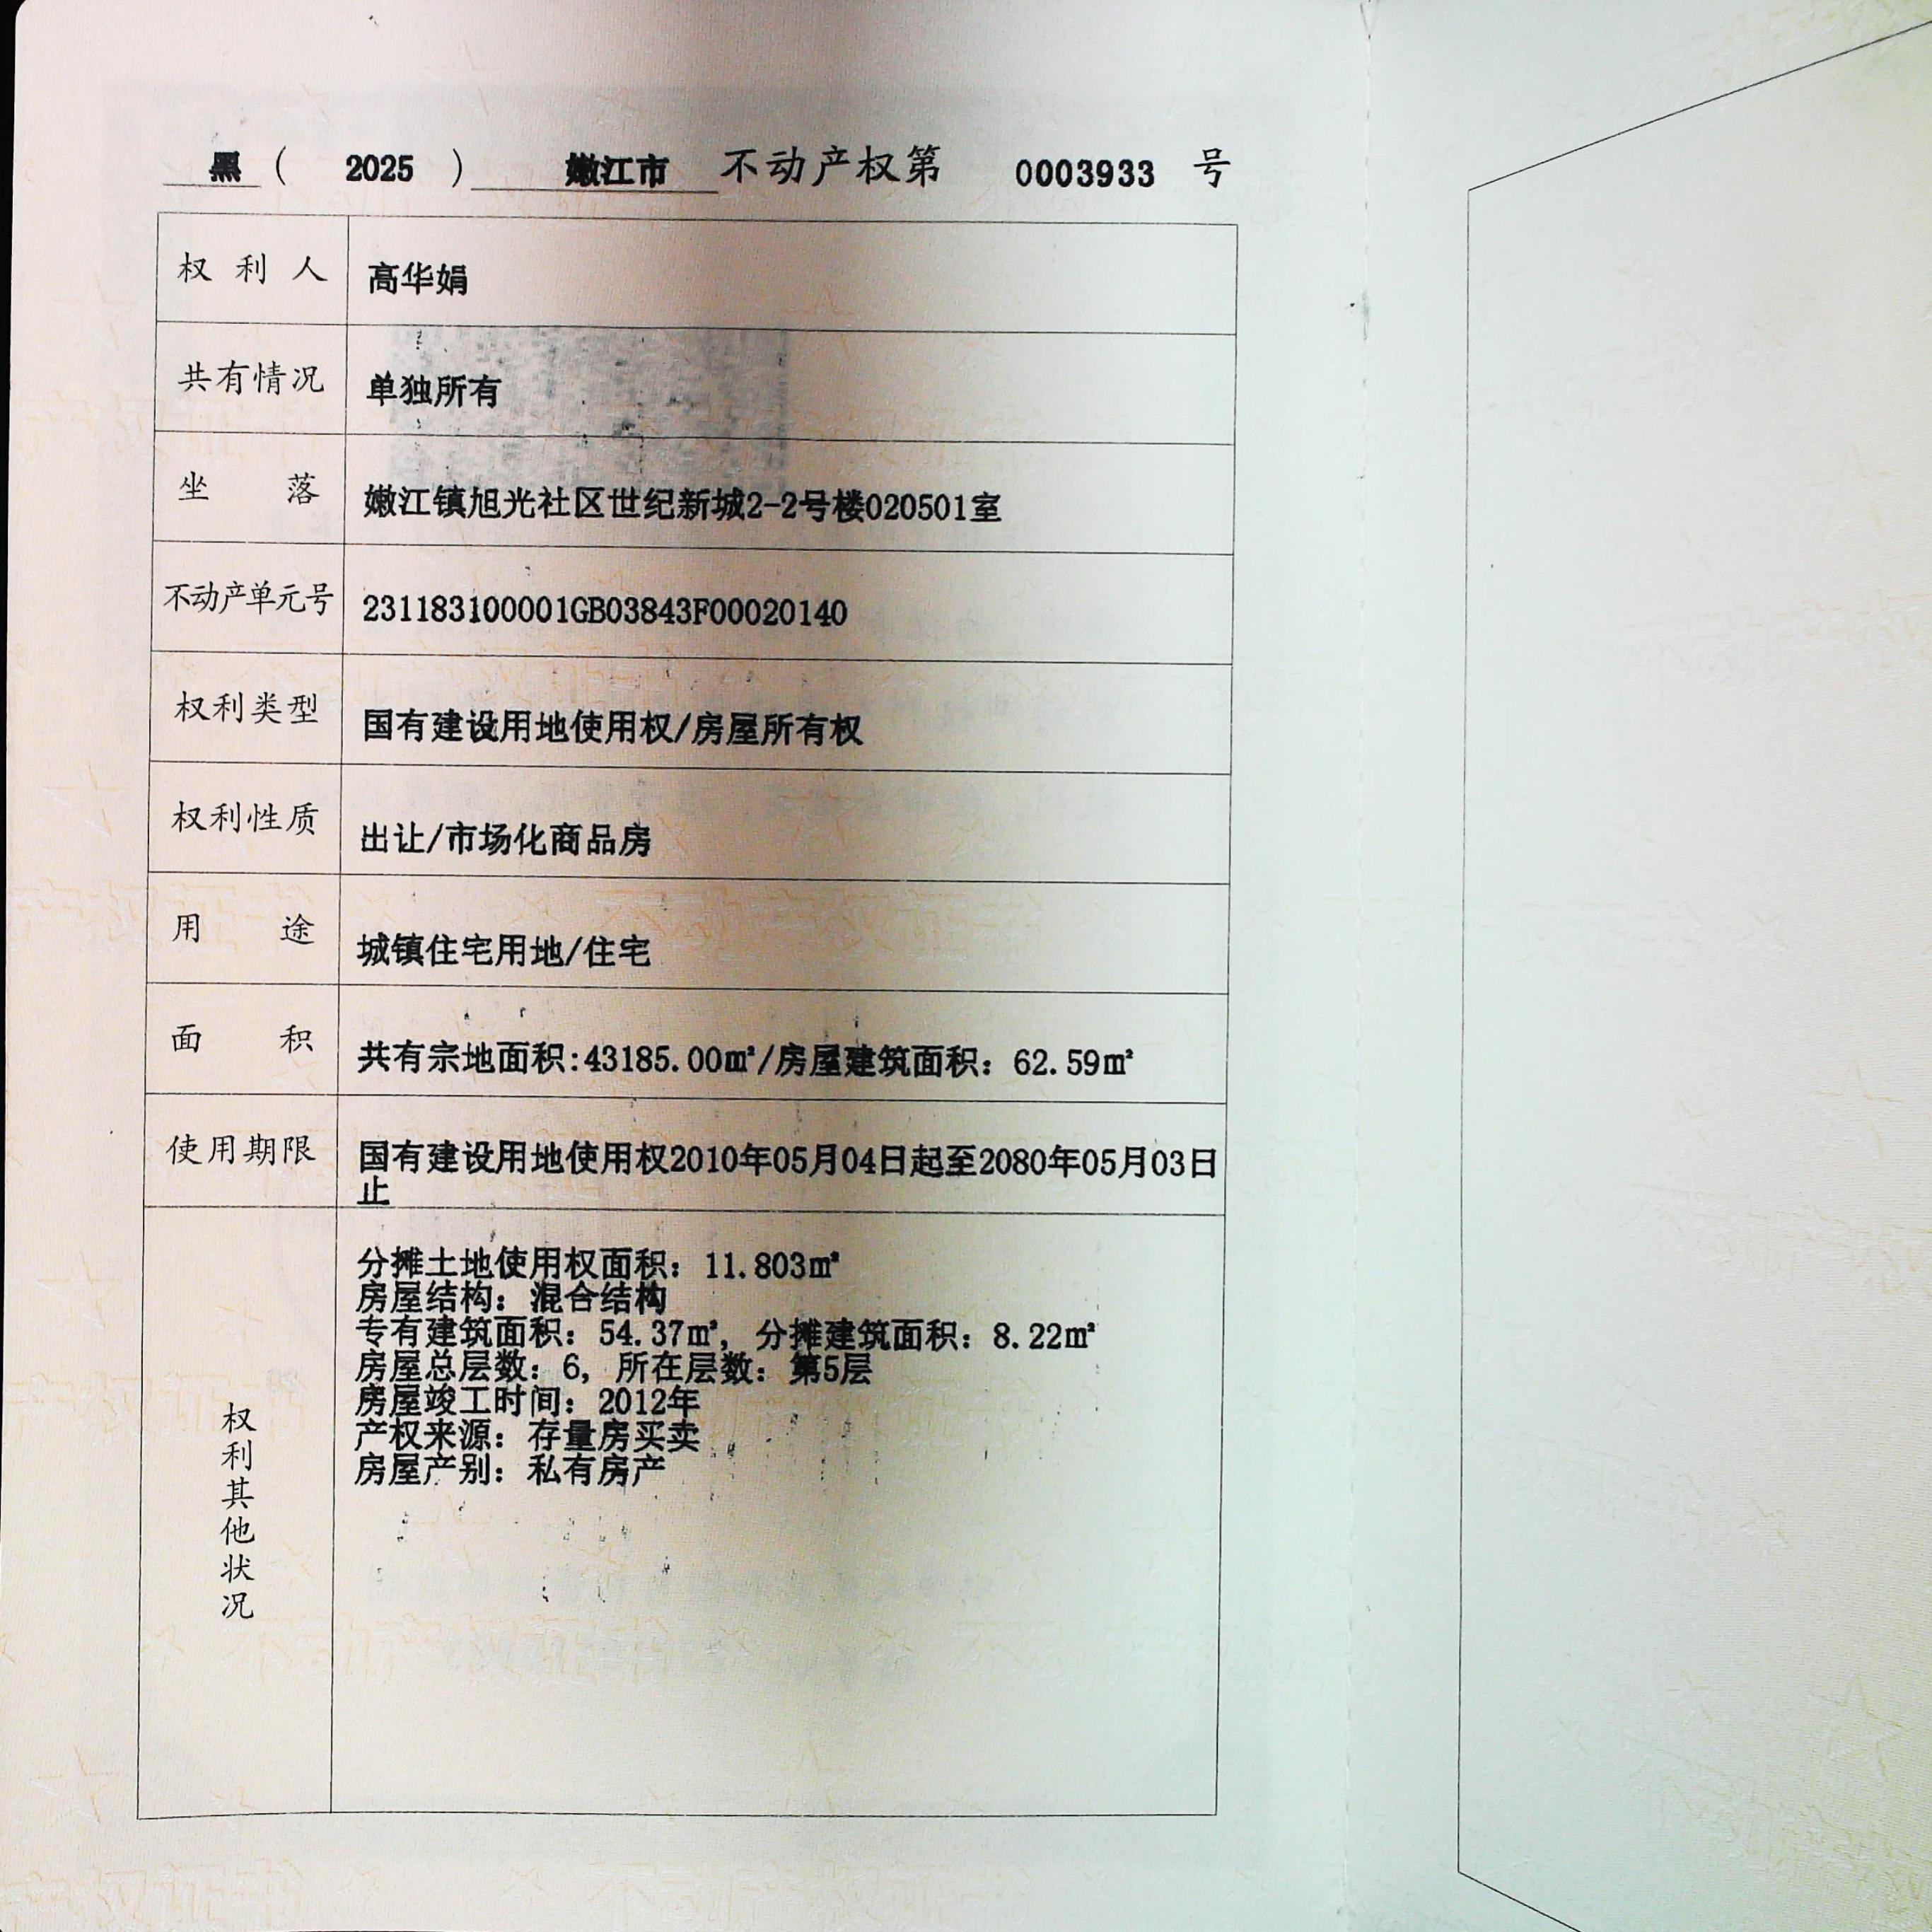 黑 ( 2025 ) 嫩江市 不动产权第 0003933 号
权利人 高华娟
共有情况 单独所有
坐落 嫩江镇旭光社区世纪新城2-2号楼020501室
不动产单元号 231183100001GB03843F00020140
权利类型 国有建设用地使用权/房屋所有权
权利性质 出让/市场化商品房
用途 城镇住宅用地/住宅
面积 共有宗地面积:43185.00㎡/房屋建筑面积：62.59㎡
使用期限 国有建设用地使用权2010年05月04日起至2080年05月03日
止
权利其他状况
分摊土地使用权面积：11.803㎡
房屋结构：混合结构
专有建筑面积：54.37㎡，分摊建筑面积：8.22㎡
房屋总层数：6，所在层数：第5层
房屋竣工时间：2012年
产权来源：存量房买卖
房屋产别：私有房产